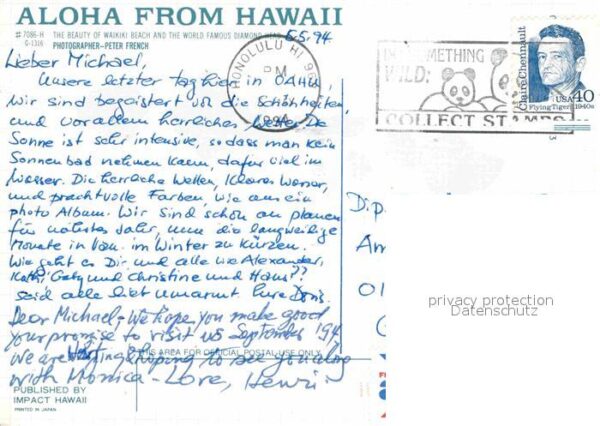 ALOHA FROM HAWAII
# 7086-H THE BEAUTY OF WAIKIKI BEACH AND THE WORLD FAMOUS DIAMOND
G-1316 PHOTOGRAPHER-PETER FRENCH
5.5.94.
Lieber Michael,
Unsere letzter tag hier in OAHU,
wir sind begeistert von die Schönheiten,
und vor allem herrliches Wetter. De
Sonne ist sehr intensive, so dass man kein
Sonnenbad nehmen kann, dafür viel im
Wasser. Die herrliche Wellen, Klares Wasser,
und prachtvolle Farben, wie aus ein
photo Album. Wir sind schon an planen
für nächstes Jahr, um die langweilige
Monate in Van. im Winter zu kürzen.
Wie geht es Dir und alle wie Alexander,
Kathi, Gaby und Christine und Hans??
Seid alle liebt umarmt Eure Doris.
Dear Michael, - We hope you make good
your promise to visit us September 194,
We are waiting & hoping to see you along
with Monica - Love, Henri
THIS AREA FOR OFFICIAL POSTAL USE ONLY
PUBLISHED BY
IMPACT HAWAII
PRINTED IN JAPAN
HONOLULU HI
PM
1994
SOMETHING
WILD:
COLLECT STAMPS
Claire Chennault
Flying Tigers 1940s
USA 40
3
Dip
Am
privacy protection
Datenschutz